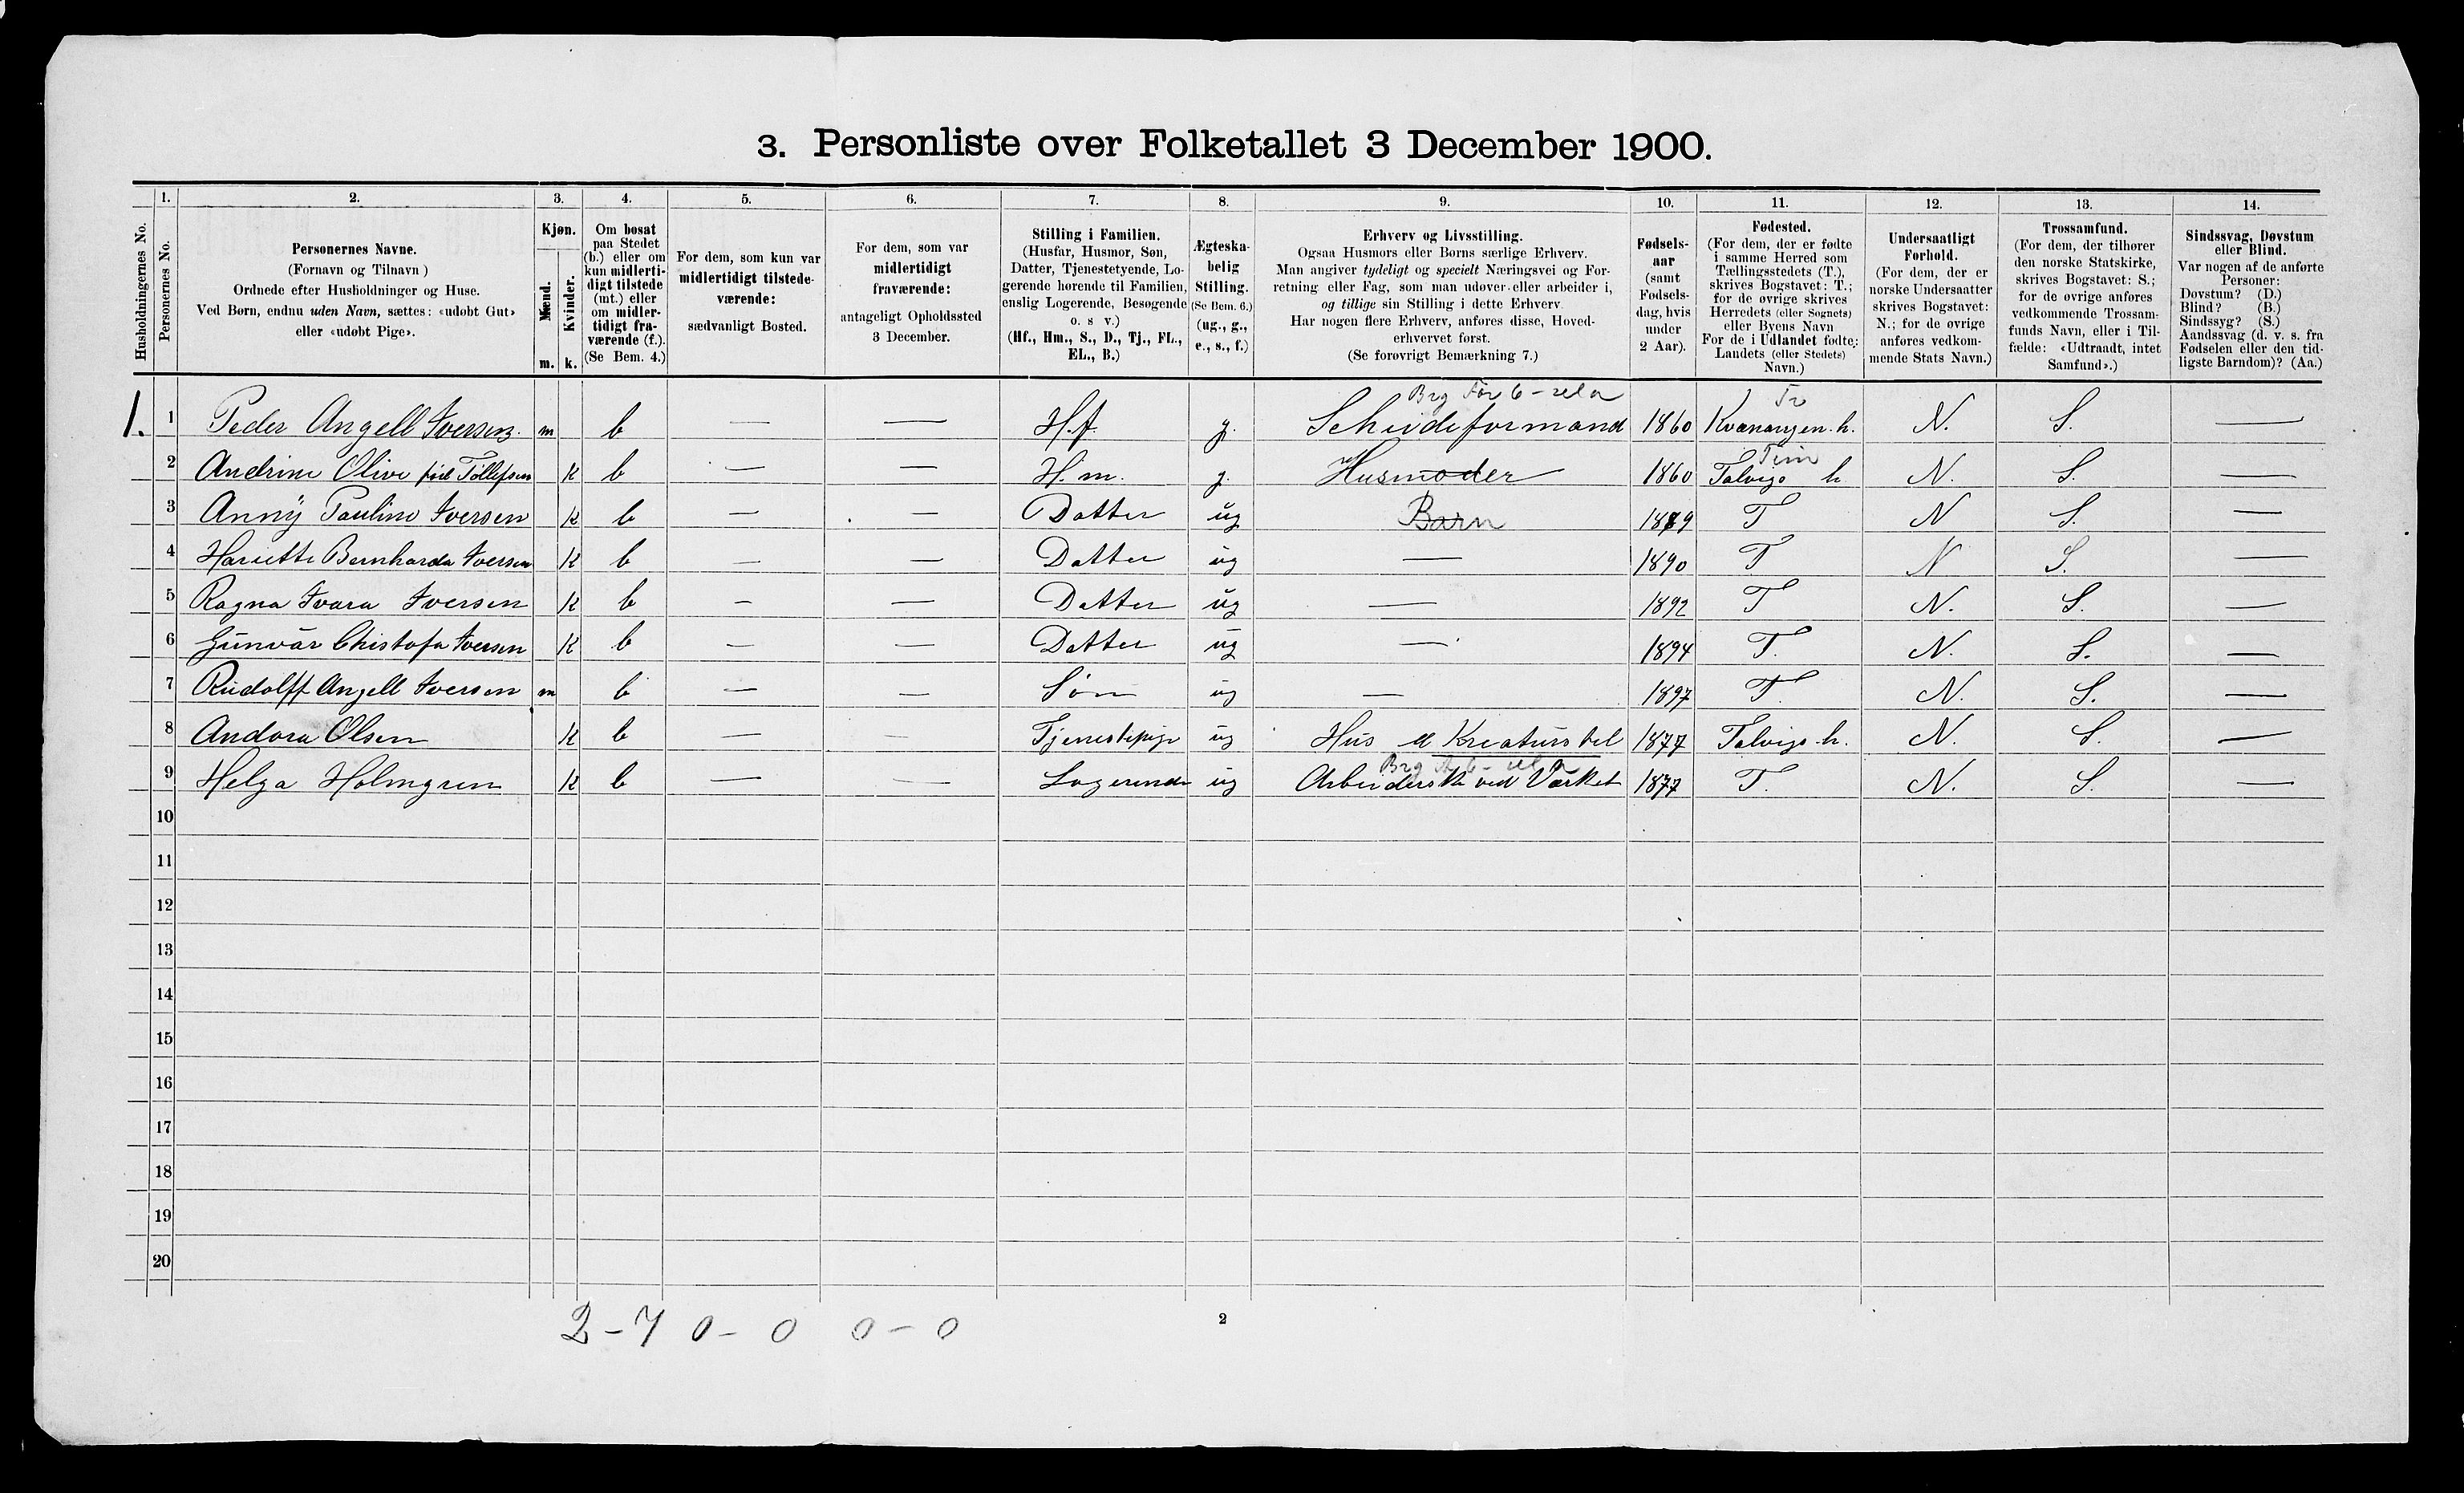 3. Personliste over Folketallet 3 December 1900.
1. 2. 3. 4. 5. 6. 7. 8. 9. 10. 11. 12. 13. 14.
Husholdningernes No.
Personernes No.
Personernes Navne.
(Fornavn og Tilnavn )
Ordnede efter Husholdninger og Huse.
Ved Børn, endnu uden Navn, sættes: «udøbt Gut»
eller «udøbt Pige».
Kjøn.
Mænd.
Kvinder.
m. k.
Om bosat
paa Stedet
(b.) eller om
kun midlerti-
digt tilstede
(mt.) eller
om midler-
tidigt fra-
værende (f.).
(Se Bem. 4.)
For dem, som kun var
midlertidigt tilstede-
værende:
sædvanligt Bosted.
For dem, som var
midlertidigt
fraværende:
antageligt Opholdssted
3 December.
Stilling i Familien.
(Husfar, Husmor, Søn,
Datter, Tjenestetyende, Lo-
gerende hørende til Familien,
enslig Logerende, Besøgende
o. s v.)
(Hf., Hm., S., D., Tj., FL.,
EL., B.)
Ægteska-
belig
Stilling.
(Se Bem. 6.)
(ug., g.,
e., s., f.)
Erhverv og Livsstilling.
Ogsaa Husmors eller Børns særlige Erhverv.
Man angiver tydeligt og specielt Næringsvei og For-
retning eller Fag, som man udøver eller arbeider i,
og tillige sin Stilling i dette Erhverv.
Har nogen flere Erhverv, anføres disse, Hoved-
erhvervet først.
(Se forøvrigt Bemærkning 7.)
Fødsels-
aar
(samt
Fødsels-
dag, hvis
under
2 Aar).
Fødested.
(For dem, der er fødte
i samme Herred som
Tællingsstedets (T.),
skrives Bogstavet: T.;
for de øvrige skrives
Herredets (eller Sognets)
eller Byens Navn
For de i Udlandet fødte:
Landets (eller Stedets)
Navn.)
Undersaatligt
Forhold.
(For dem, der er
norske Undersaatter
skrives Bogstavet:
N.; for de øvrige
anføres vedkom-
mende Stats Navn.)
Trossamfund.
(For dem, der tilhører
den norske Statskirke,
skrives Bogstavet: S.;
for de øvrige anføres
vedkommende Trossam-
funds Navn, eller i Til-
fælde: «Udtraadt, intet
Samfund».)
Sindssvag, Døvstum
eller Blind.
Var nogen af de anførte
Personer:
Døvstum? (D.)
Blind? (B.)
Sindssyg? (S.)
Aandssvag (d. v. s. fra
Fødselen eller den tid-
ligste Barndom)? (Aa.)
Brg For 6 - Tr
1. 1 Peder Angell Iversen. m b — — H.f. g. Scheideformand 1860 Kvænangen. h. N. S. —
Fin
2 Andrine Olive født Tollefsen K b — — H. m. g. Husmoder 1860 Talvige h. N. S. —
3 Anny Pauline Iversen K b — — Datter ug Barn 1889 T N S. —
4 Hariette Bernharda Iversen K b — — Datter ug — 1890 T N S. —
5 Ragna Ivara Iversen K b — — Datter ug — 1892 T N. S. —
6 Gunvår Christofa Iversen K b — — Datter ug — 1894 T. N. S. —
7 Rudolff Angell Iversen m b — — Søn ug — 1897 T. N. S. —
8 Andora Olsen K b — — Tjenestepige ug Hus & Kreaturstel 1877 Talvige h. N. S. —
Brg
9 Helga Holmgren K b — — Logerende ug Arbeiderske ved Værket 1877 T. N. S. —
10
11
12
13
14
15
16
17
18
19
20
2 - 7 0 - 0 0 - 0
2